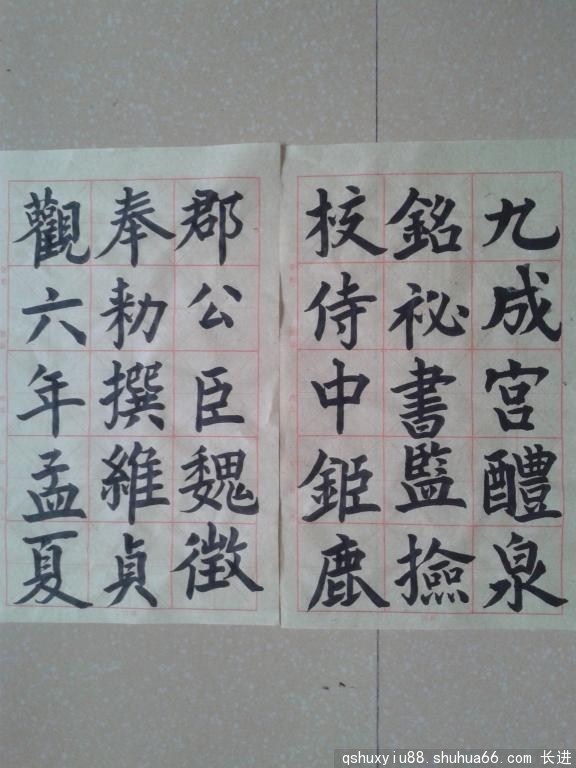 九成宮醴泉
銘祕書監撿
校侍中鉅鹿
郡公臣魏徵
奉勅撰維貞
觀六年孟夏
qshuxyiu88.shuhua66.com 长进